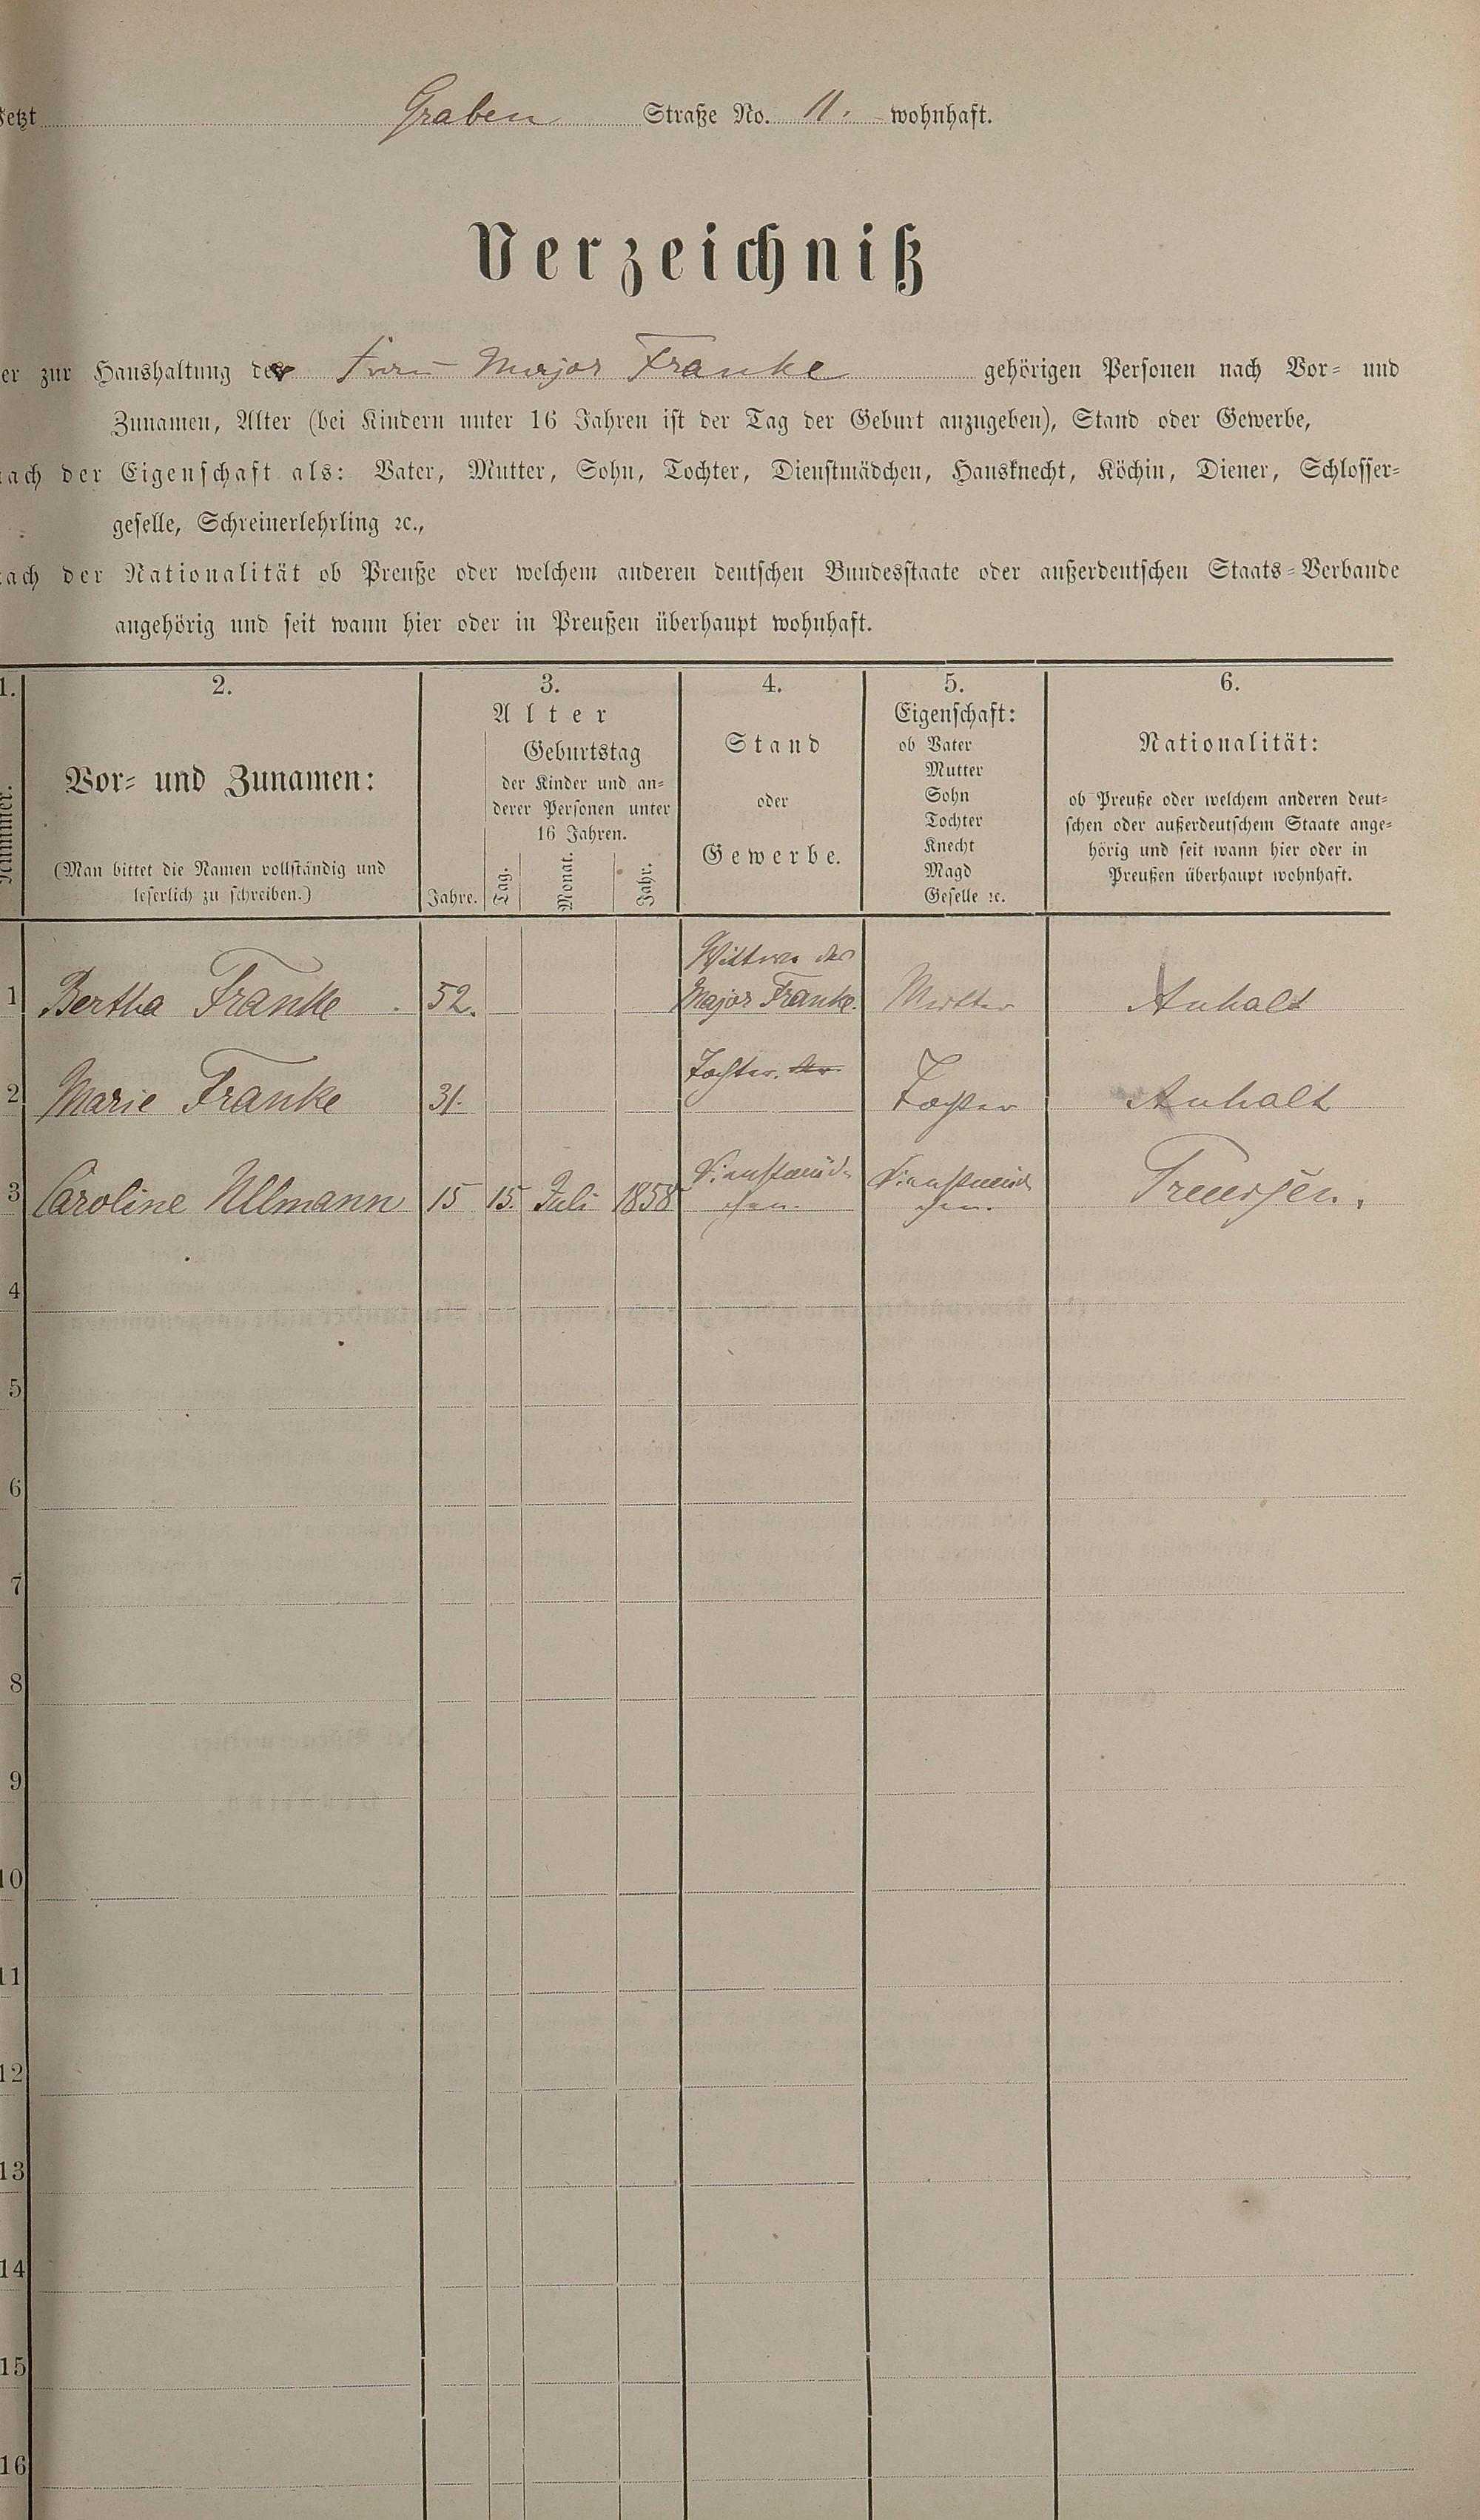 Jetzt Graben Straße No. 11. wohnhaft.
Verzeichniß
er zur Haushaltung der Frau Major Franke gehörigen Personen nach Vor- und
Zunamen, Alter (bei Kindern unter 16 Jahren ist der Tag der Geburt anzugeben), Stand oder Gewerbe,
nach der Eigenschaft als: Vater, Mutter, Sohn, Tochter, Dienstmädchen, Hausknecht, Köchin, Diener, Schlosser-
geselle, Schreinerlehrling ꝛc.,
nach der Nationalität ob Preuße oder welchem anderen deutschen Bundesstaate oder außerdeutschen Staats-Verbande
angehörig und seit wann hier oder in Preußen überhaupt wohnhaft.
1. 2. 3. 4. 5. 6.
Nummer.
Vor- und Zunamen:
(Man bittet die Namen vollständig und
leserlich zu schreiben.)
Alter
Geburtstag
der Kinder und an-
derer Personen unter
16 Jahren.
Jahre. Tag. Monat. Jahr.
Stand
oder
Gewerbe.
Eigenschaft:
ob Vater
Mutter
Sohn
Tochter
Knecht
Magd
Geselle ꝛc.
Nationalität:
ob Preuße oder welchem anderen deut-
schen oder außerdeutschem Staate ange-
hörig und seit wann hier oder in
Preußen überhaupt wohnhaft.
Wittwe des
1 Bertha Franke. 52. Major Franke. Mutter Anhalt
Tochter.
2 Marie Franke 31. Tochter Anhalt
Dienstmäd- Dienstmäd
3 Caroline Ullmann 15 15. Juli 1858 chen. chen. Preußen.
4
5
6
7
8
9
10
11
12
13
14
15
16